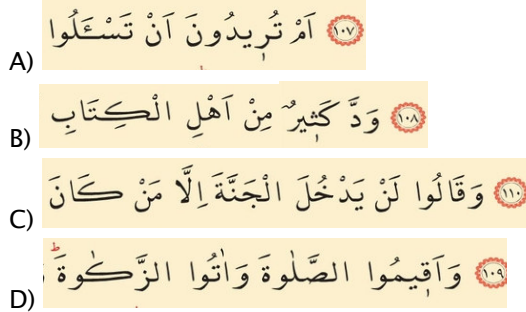 A) ﴿١٠٧﴾ اَمْ تُر۪يدُونَ اَنْ تَسْـَٔلُوا
B) ﴿١٠٨﴾ وَدَّ كَث۪يرٌ مِنْ اَهْلِ الْكِتَابِ
C) ﴿١١٠﴾ وَقَالُوا لَنْ يَدْخُلَ الْجَنَّةَ اِلَّا مَنْ كَانَ
D) ﴿١٠٩﴾ وَاَق۪يمُوا الصَّلٰوةَ وَاٰتُوا الزَّكٰوةَۜ